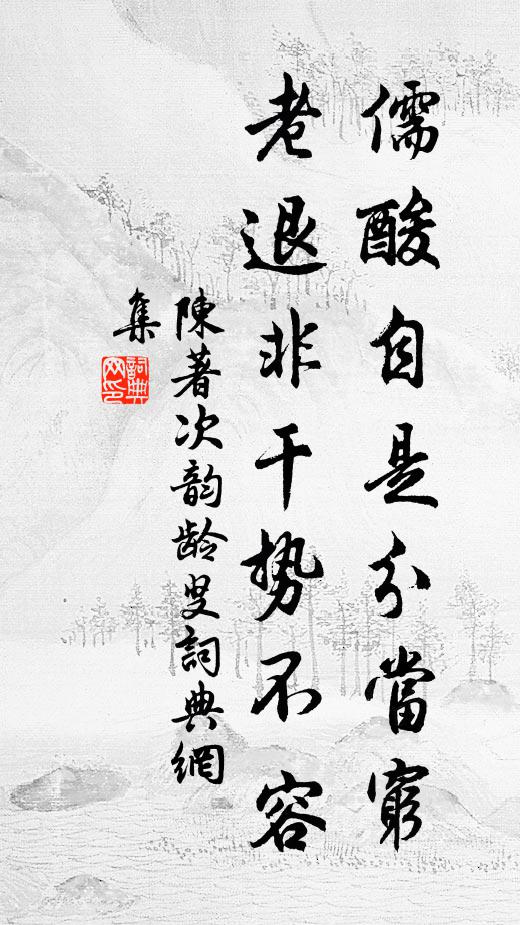 儒酸自是分當窮
老退非干势不容
陳著次韵龄叟詞典網
集
詞典网印